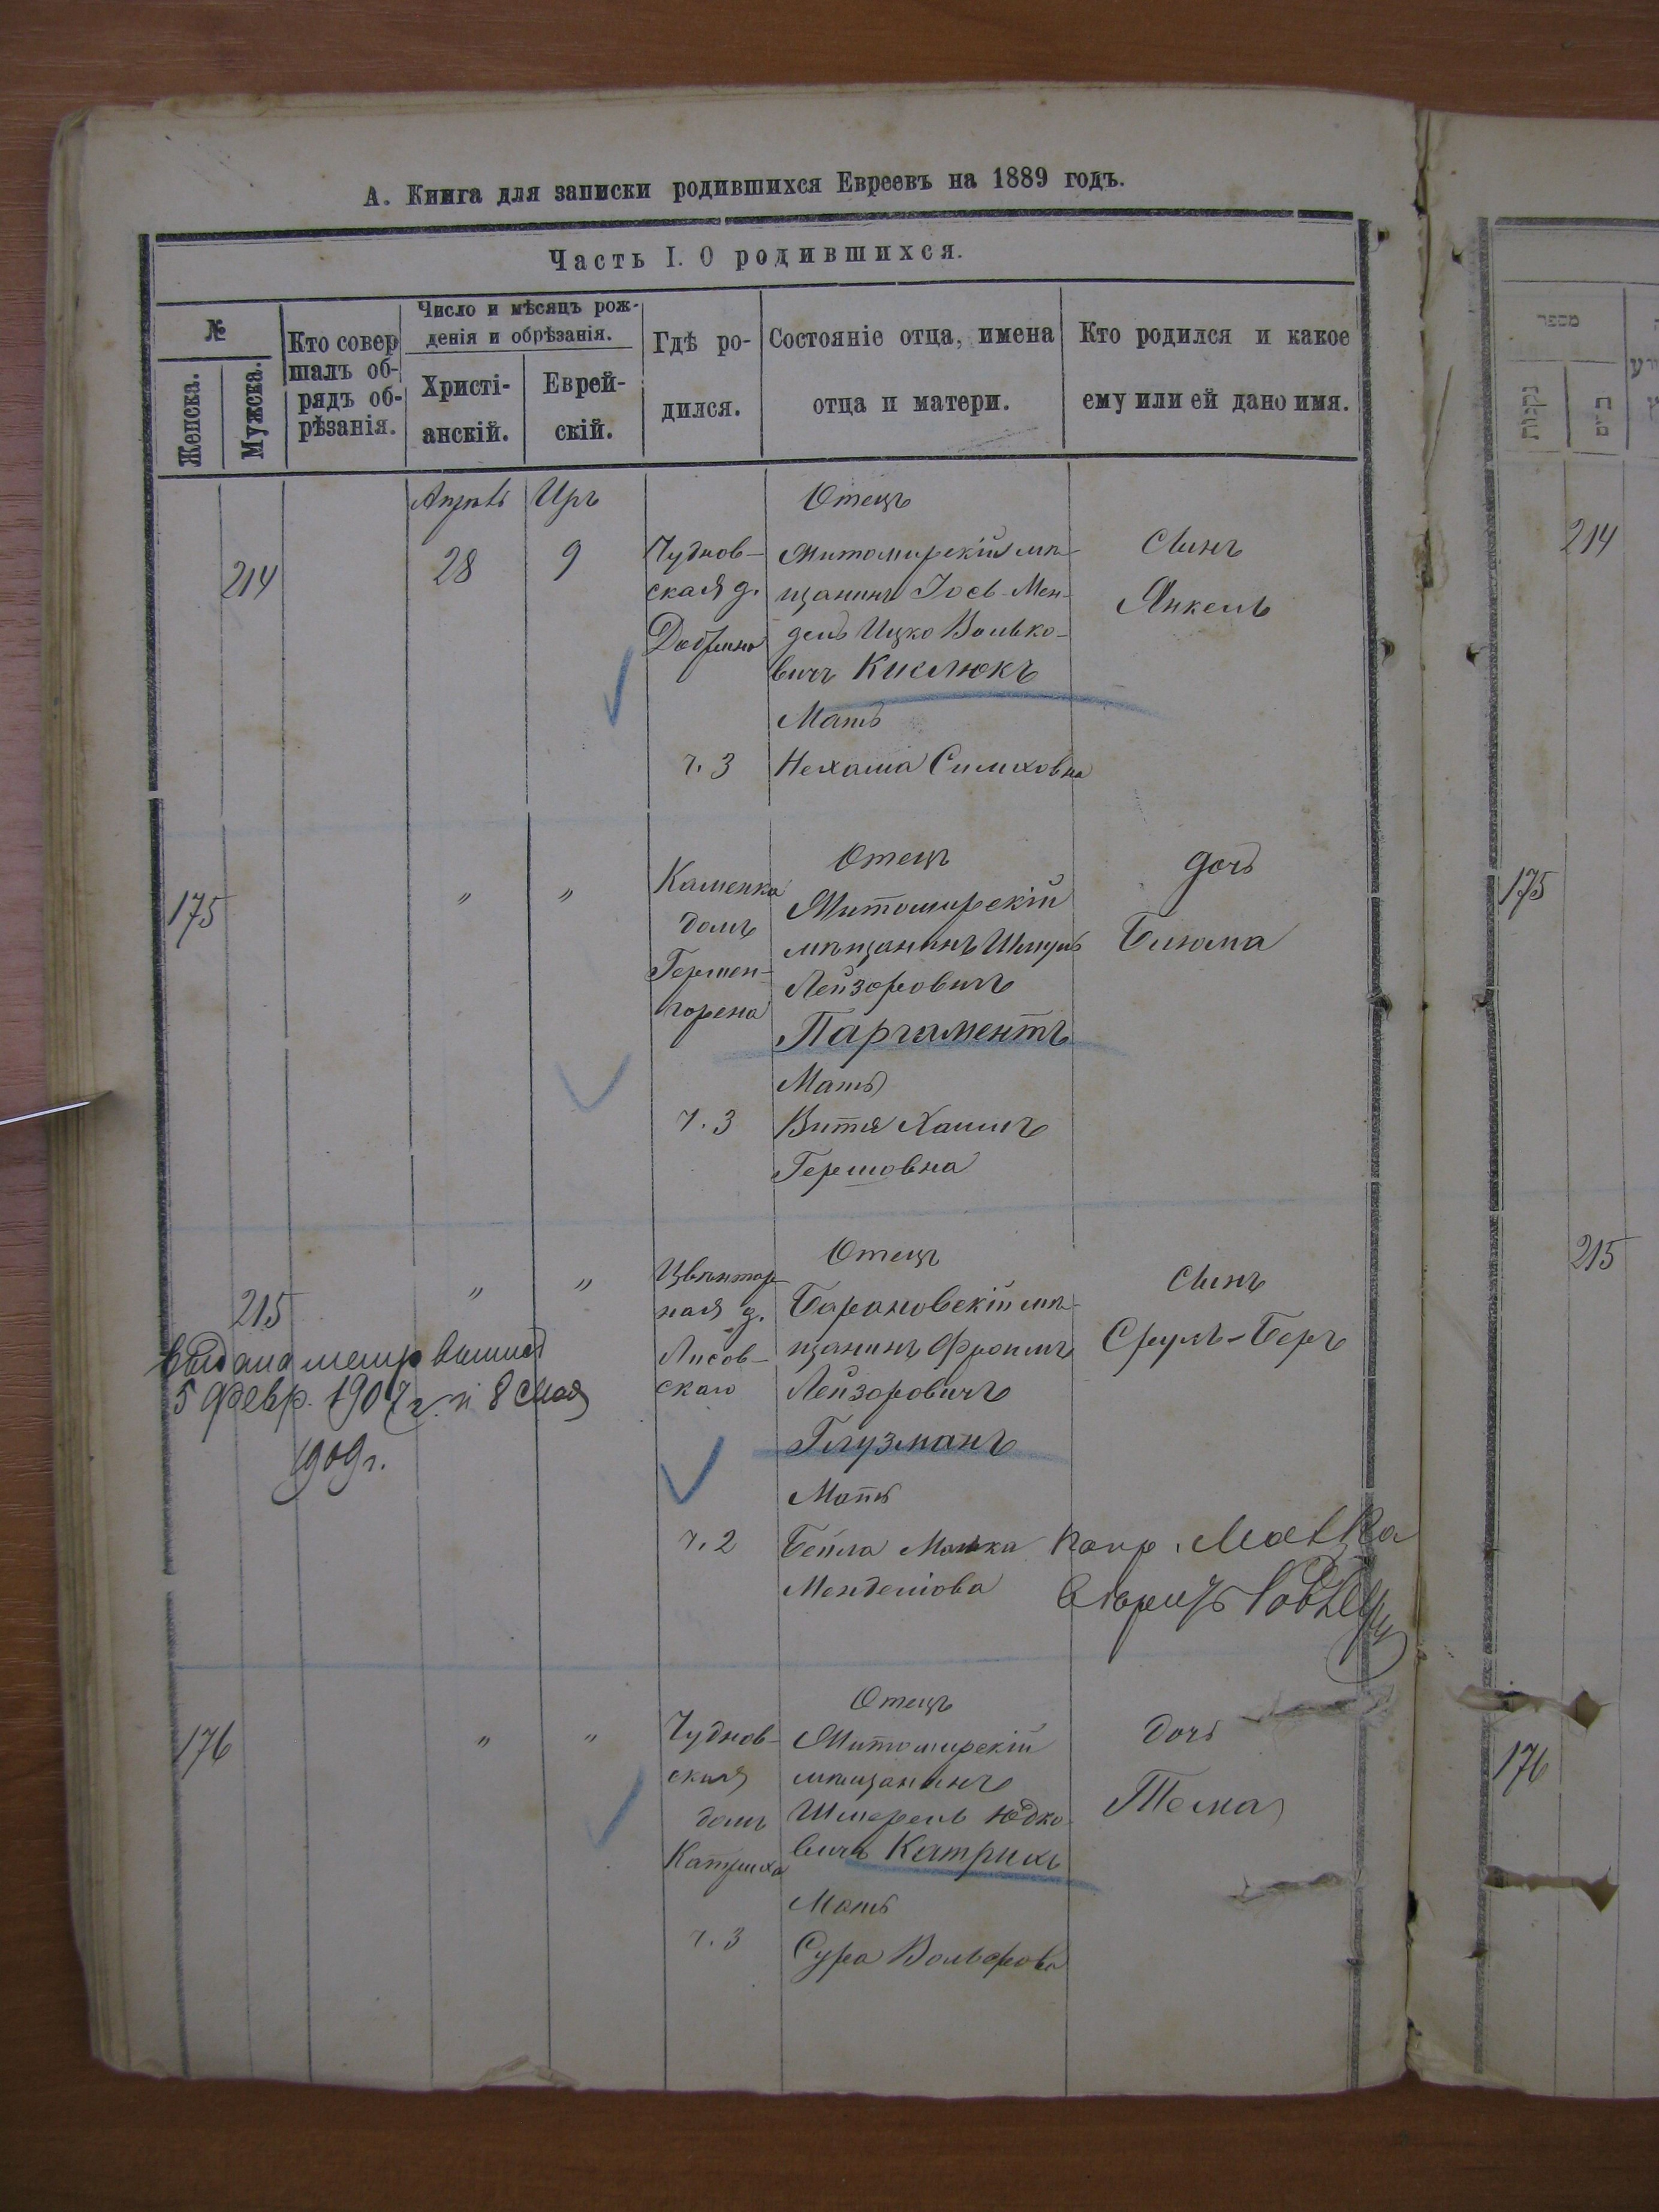 А. Книга для записки родившихся Евреевъ на 1889 годъ.
Часть I. О родившихся.
№
Женска.
Мужска.
Кто совер
шалъ об-
рядъ об-
рѣзанія.
Число и мѣсяцъ рож-
денія и обрѣзанія.
Христі-
анскій.
Еврей-
скій.
Гдѣ ро-
дился.
Состояніе отца, имена
отца и матери.
Кто родился и какое
ему или ей дано имя.
214
Апрѣль
28
Иръ
9
Чуднов-
ская д.
ч. 3
Отецъ
Житомирскій мѣ-
щанинъ Іось-Мен-
дель Ицко Волько-
вичъ Кислюкъ
Мать
Нехама Симховна
Сынъ
Янкель
175
"
"
Каменка
домъ
ч. 3
Отецъ
Житомирскій
мѣщанинъ Шмуль
Лейзоровичъ
Паргаментъ
Мать
Витя Хаимъ
Гершовна
дочь
Блюма
215
выдана метр выпись
5 февр. 1907 г. и 8 мая
1909 г.
"
"
Цвинтар-
ная д.
Лисов-
скаго
ч. 2
Отецъ
Барановскій мѣ-
щанинъ Фроимъ
Лейзоровичъ
Глузманъ
Мать
Бейла Малка
Менделова
Сынъ
Сруль-Беръ
176
"
"
Чуднов-
ская
домъ
Катриха
ч. 3
Отецъ
Житомирскій
мѣщанинъ
Шмерель Юдко-
вичъ Катрихъ
Мать
Сура Вольфова
Дочь
Тема
מספר
נקבות
זכרים
214
175
215
176